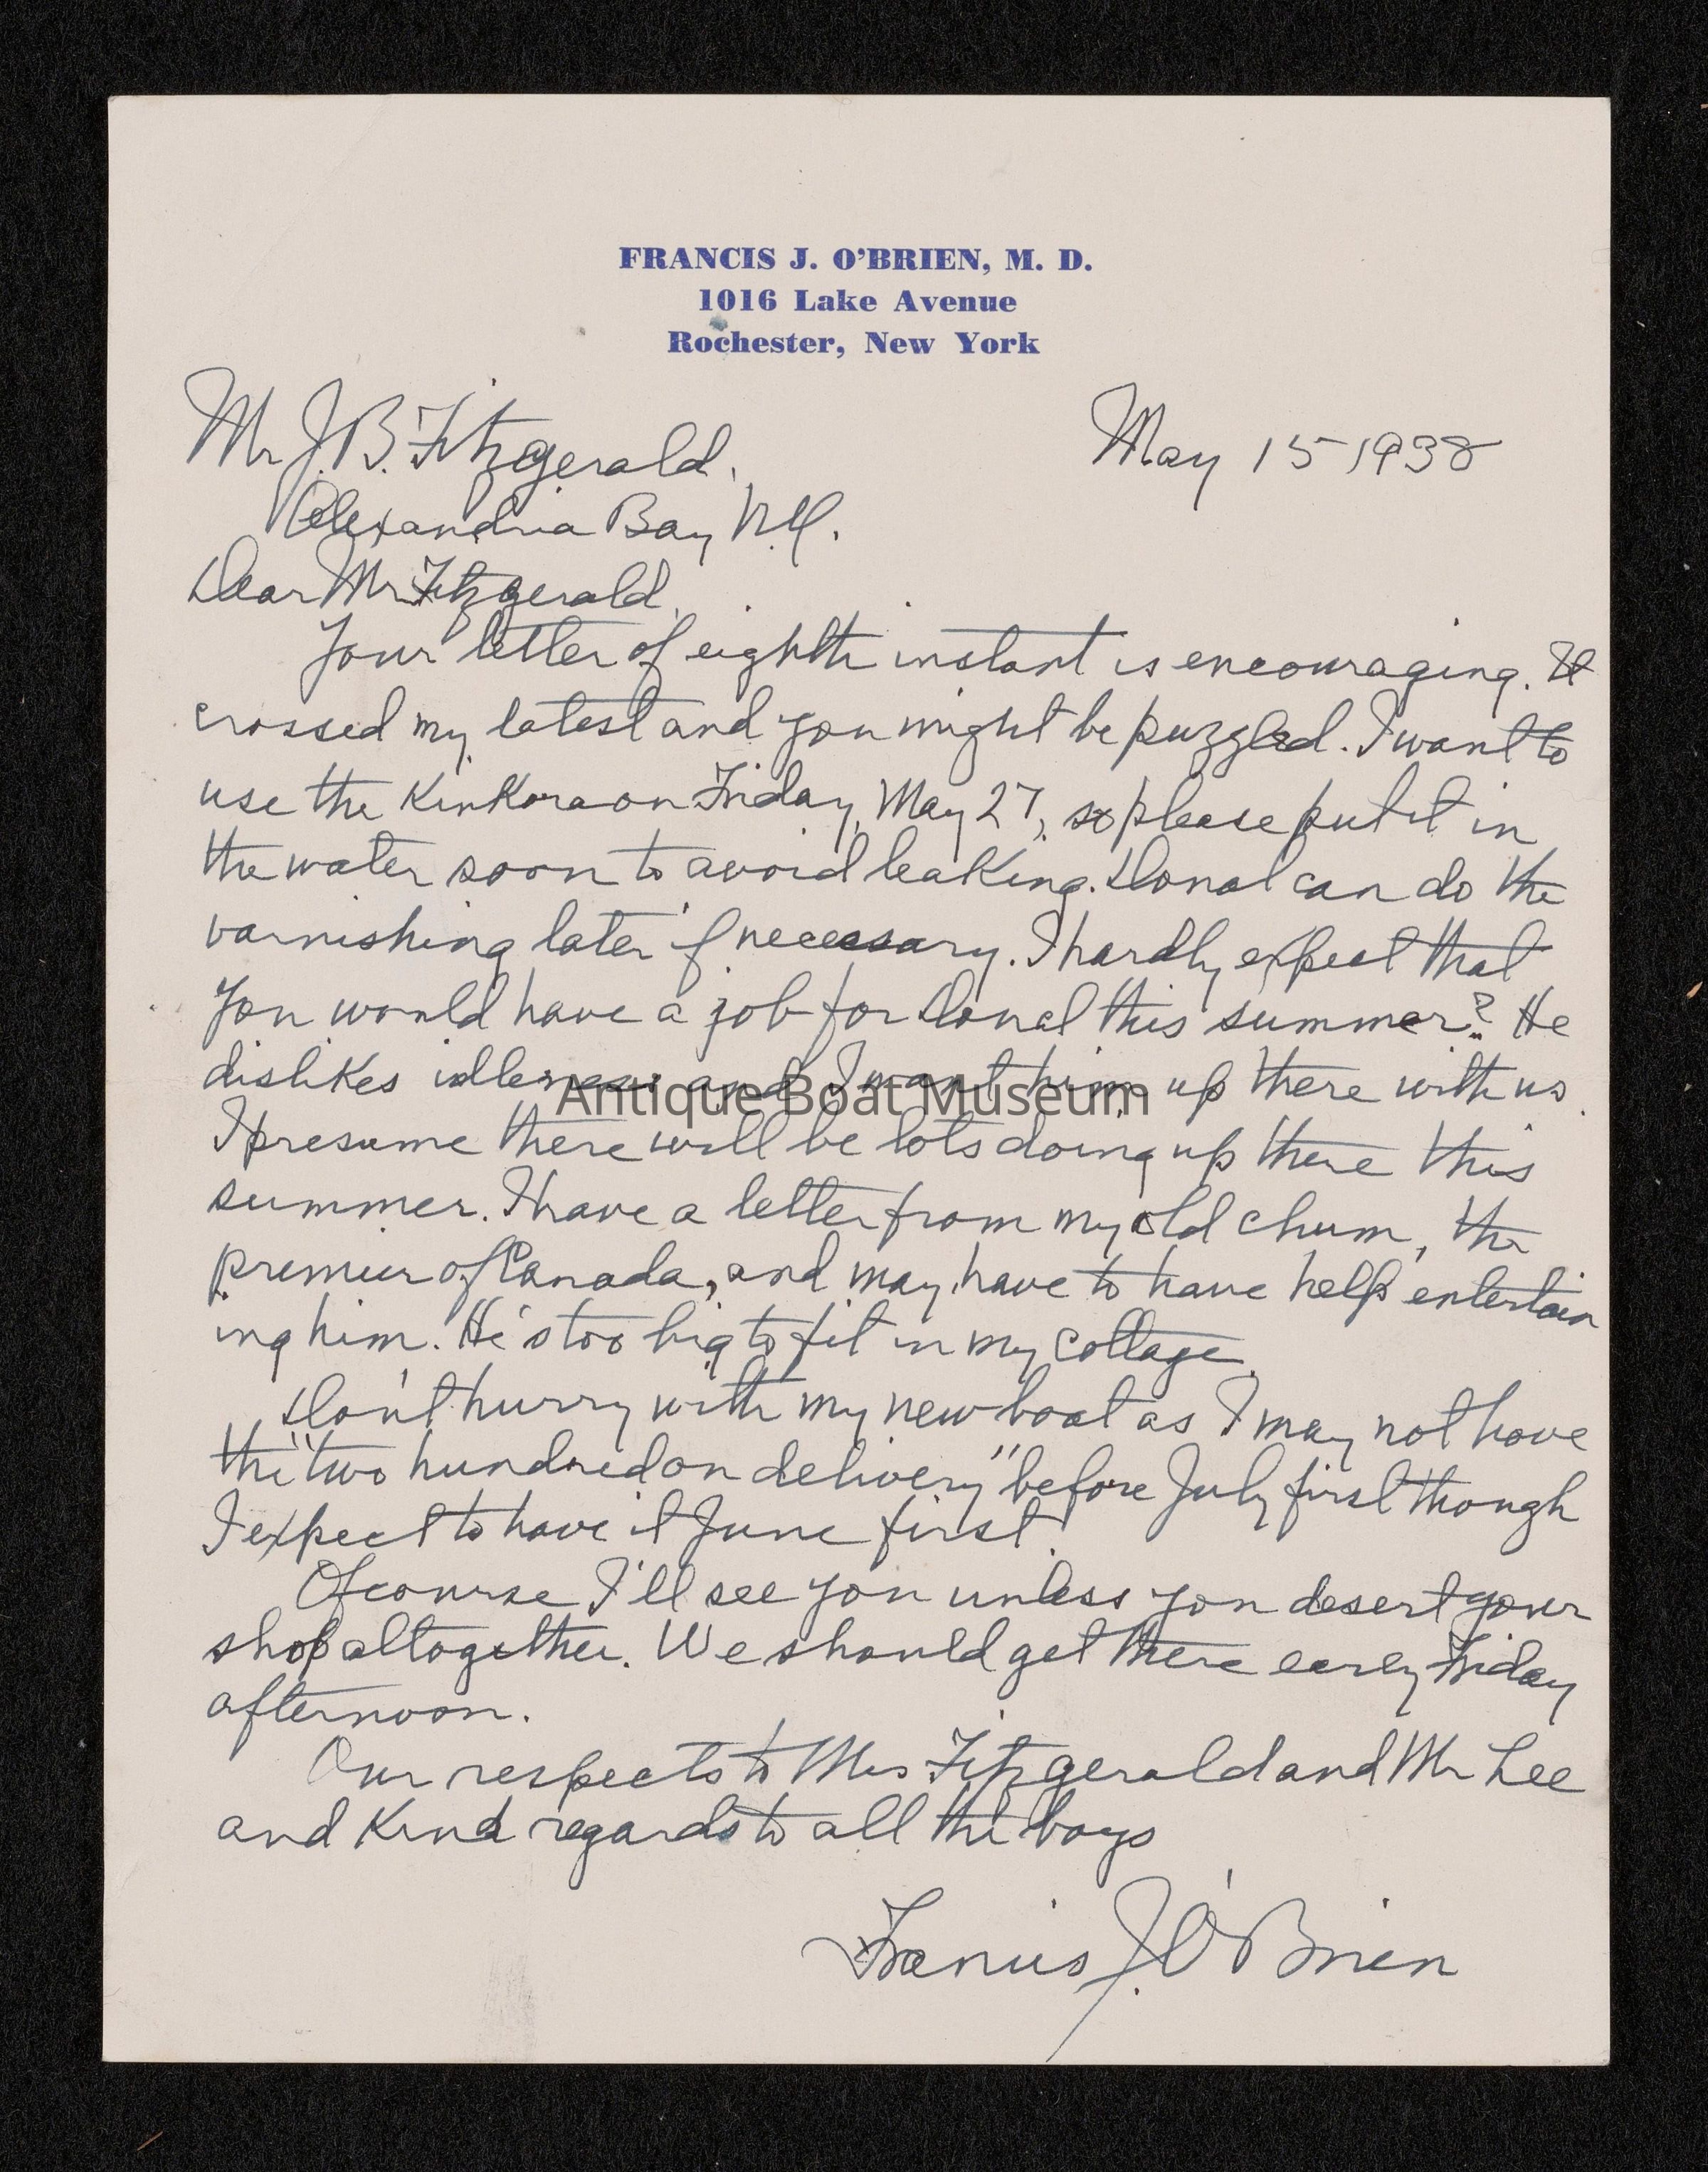 FRANCIS J. O'BRIEN, M. D.
1016 Lake Avenue
Rochester, New York
Mr J. B. Fitzgerald. May 15 1938
Alexandria Bay N.Y.
Dear Mr Fitzgerald.
Your letter of eighth instant is encouraging. It
crossed my latest and you might be puzzled. I want to
use the Kinkora on Friday, May 27, so please put it in
the water soon to avoid leaking. Donal can do the
varnishing later if necessary. I hardly expect that
you would have a job for Donal this summer? He
dislikes idleness and I want him up there with us.
Antique Boat Museum
I presume there will be lots doing up there this
summer. I have a letter from my old chum, the
premier of Canada, and may have to have help entertain
ing him. He's too big to fit in my cottage.
Don't hurry with my new boat as I may not have
the "two hundred on delivery" before July first though
I expect to have it June first.
Of course I'll see you unless you desert your
shop altogether. We should get there early Friday
afternoon.
Our respects to Mrs Fitzgerald and Mr Lee
and kind regards to all the boys
Francis J. O'Brien